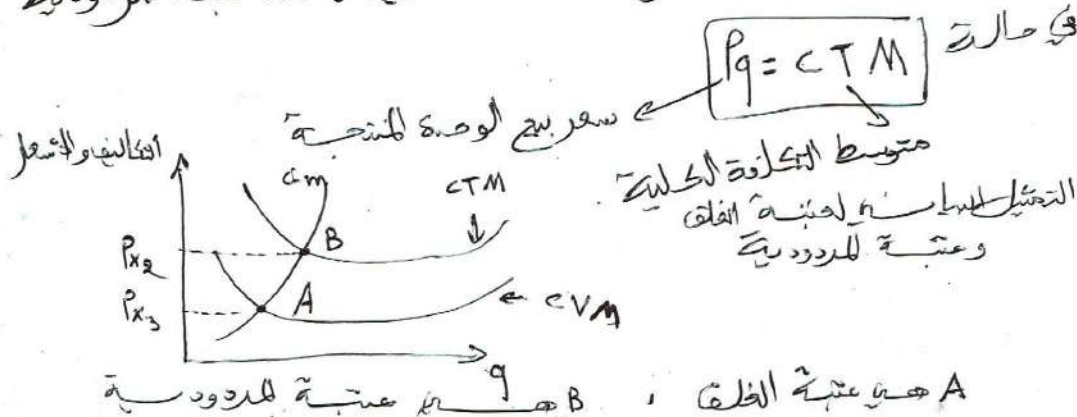 في حالة Pq = CTM
سعر بيع الوحدة المنتجة
متوسط التكلفة الكلية
التمثيل البياني لعتبة الغلق
وعتبة المردودية
التكاليف والأسعار
Cm
CTM
B
Px2
A
Px3
CVM
q
A هي عتبة الغلق ، B هي عتبة المردودية